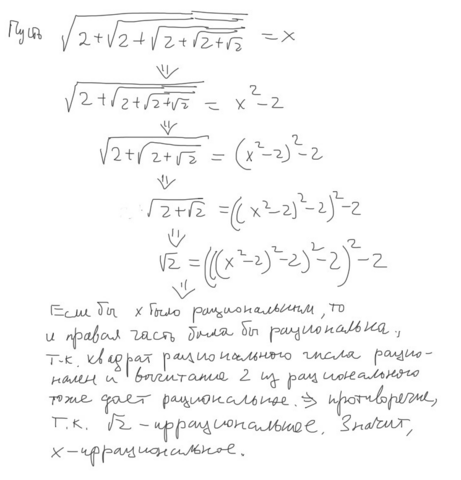 Пусть √(2+√(2+√(2+√(2+√2)))) = x
⇓
√(2+√(2+√(2+√2))) = x²-2
⇓
√(2+√(2+√2)) = (x²-2)²-2
⇓
√(2+√2) = ((x²-2)²-2)²-2
⇓
√2 = (((x²-2)²-2)²-2)²-2
⇓
Если бы x было рациональным, то
и правая часть была бы рациональна.,
т.к. квадрат рационального числа рацио-
нален и вычитание 2 из рационального
тоже дает рациональное. ⇒ противоречие,
Т.к. √2 - иррациональное. Значит,
x - иррациональное.